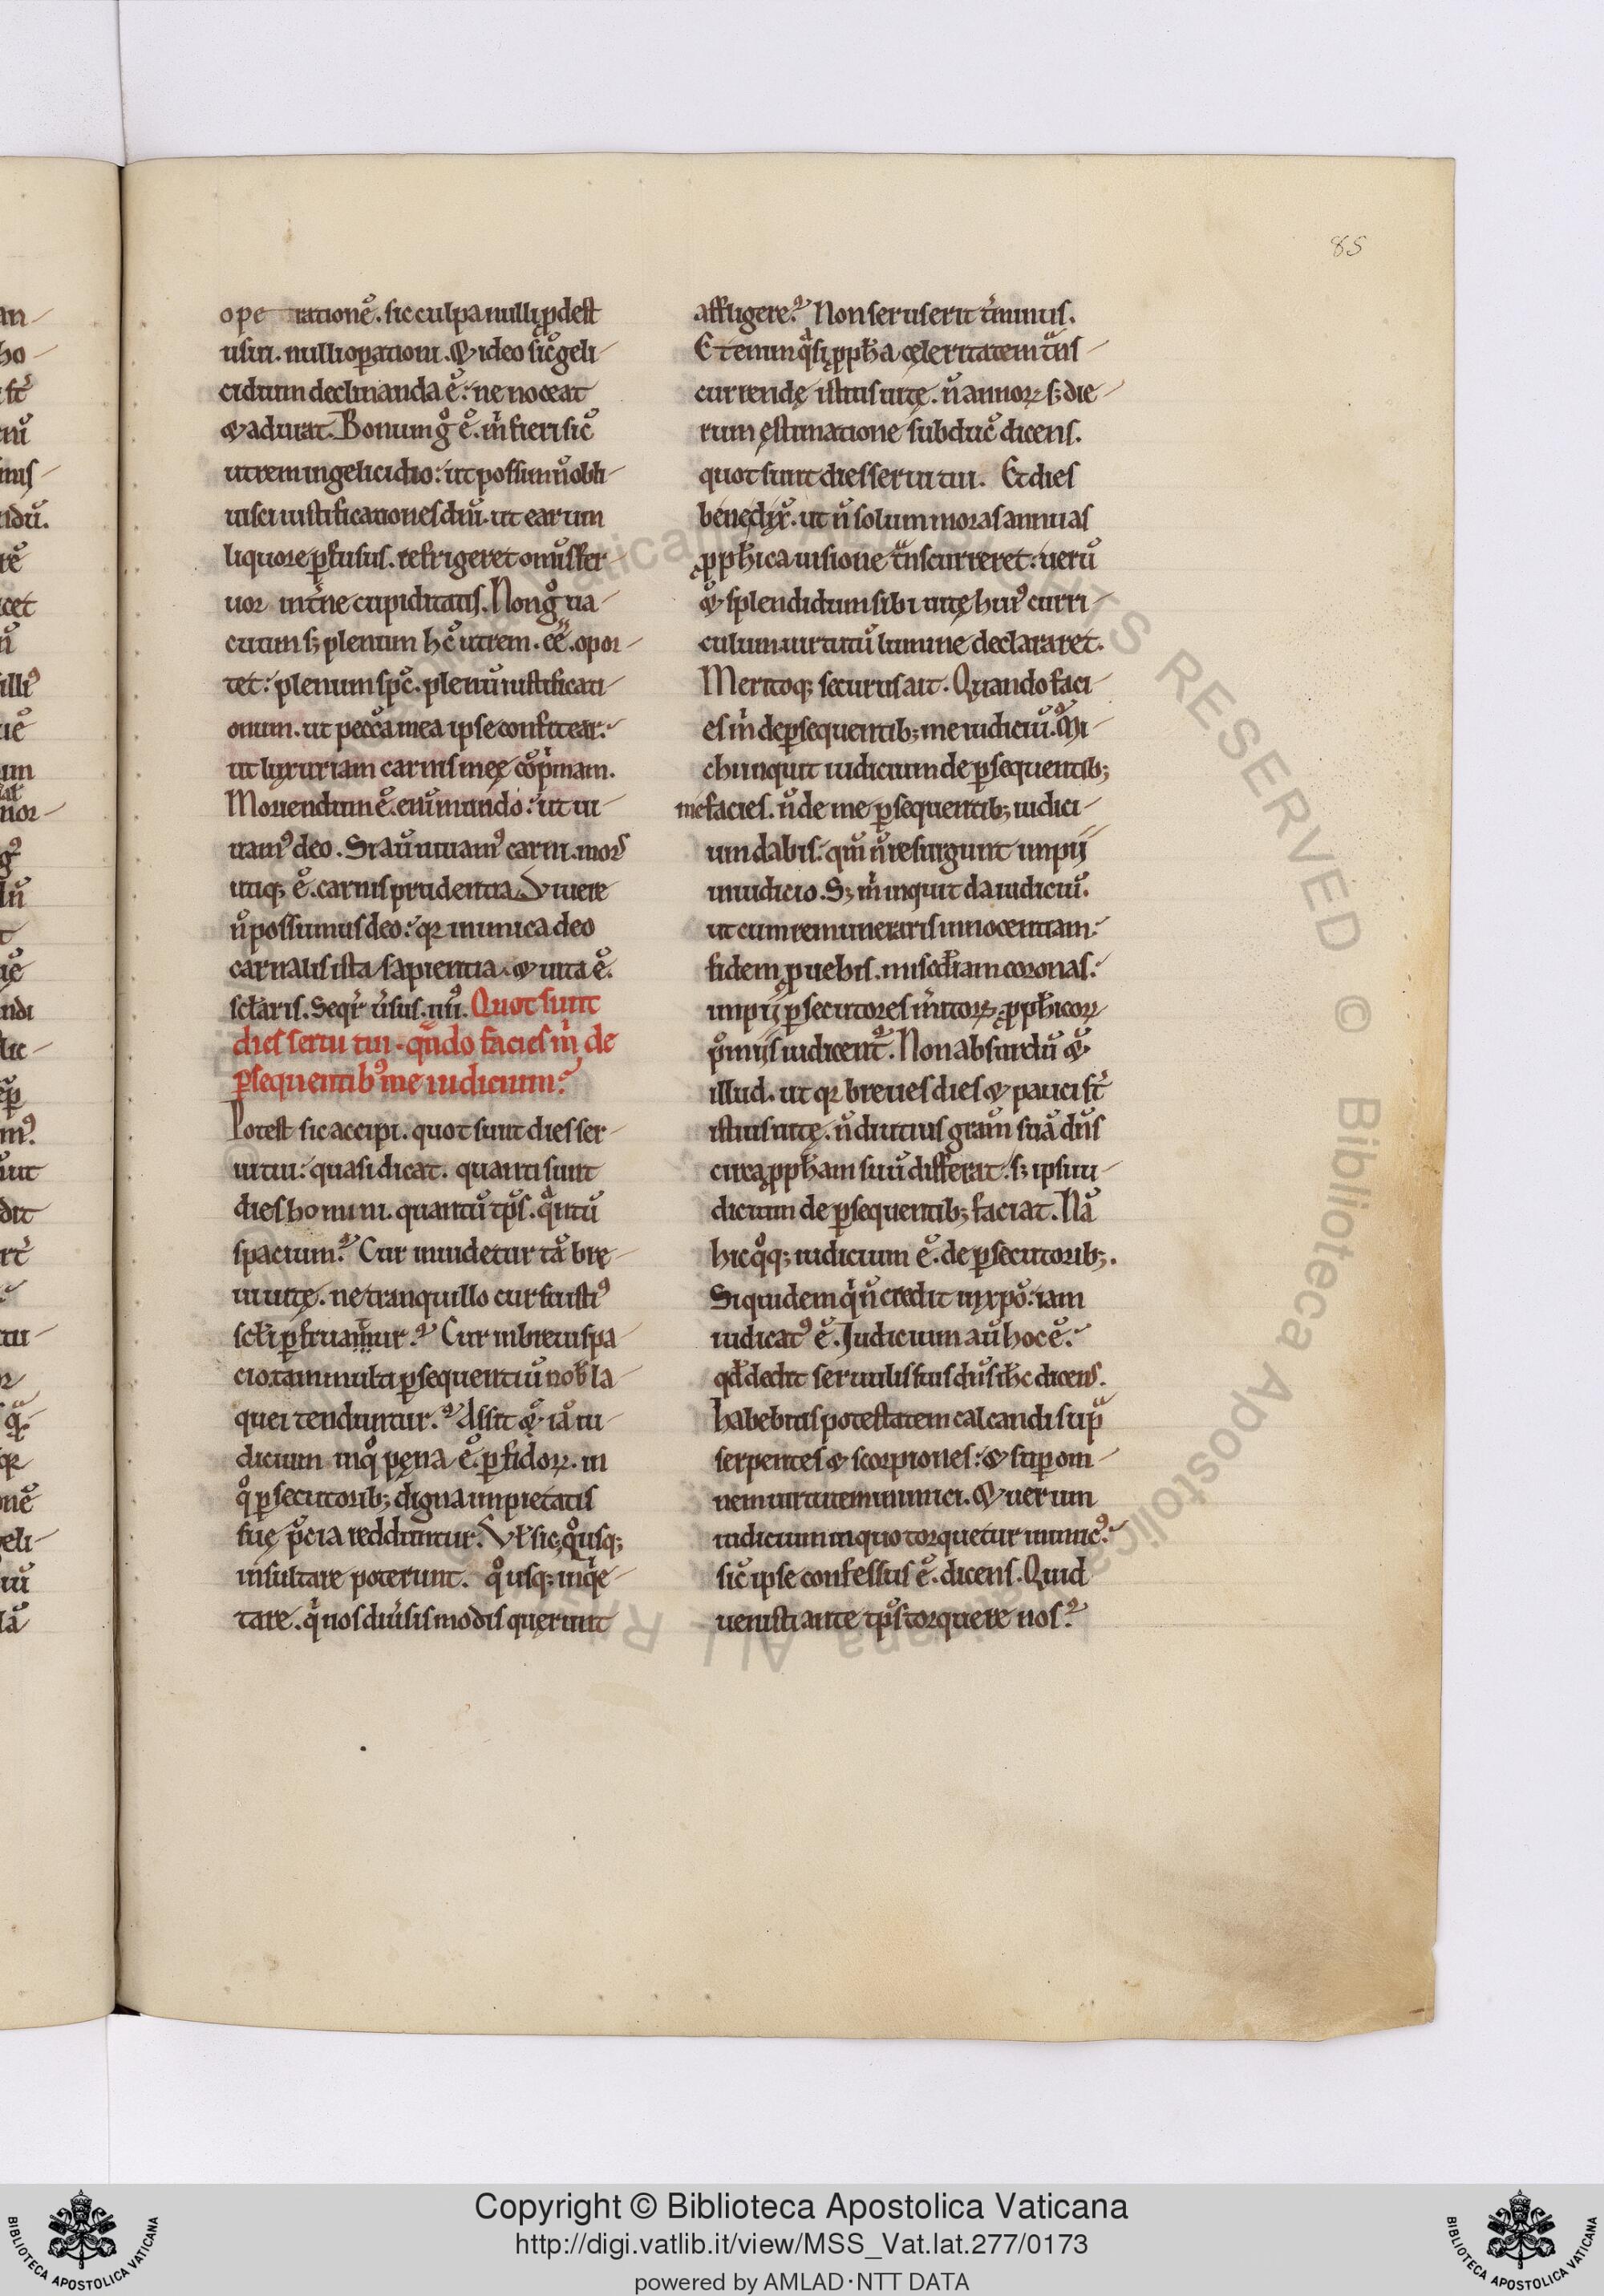 85
ope ratione᷒. sic culpa nulli ꝓdest
usui. nulli oꝑationi. & ideo sic̄ geli-
cidium declinanda ē. ne noceat
& adurat. Bonum gͦ ē. m̍ fieri sic̄
utrem in gelicidio. ut possim n̄ obli-
uisci iustificationes diu̅. ut earum
liquore ꝑfusus. refrigeret omīs fer-
uor int̍ne cupiditatis. Non gͦ ua-
cuum s; plenum hc̄ utrem. ēē. opor-
tet. plenum spc̄. plenū iustificati-
onum. ut pecc̄a mea ipse confitear.
ut luxuriam carnis meę cōp̍mam.
Moriendum ē. enī mundo. ut ui-
uamꝰ deo. Si aū uiuamꝰ carni. mors
utiq; ē. carnis prudentia. Viuere
n̄ possumus deo. qꝛ inimica deo
carnalis ista sapientia. & uita ē.
sclaris. Seqr̍ ūsus. iiii. Quot sunt
dies serui tui. qn̄do facies m̍ de
ꝑsequentibꝰ me iudicium?
Potest sic accipi. quot sunt dies ser-
ui tui. quasi dicat. quanti sunt
dies hominū. quantū tp̄s. qͣntū
spacium? Cur inuidetur tā bre-
ui uitę. ne tranquillo cursu istiꝰ
scli ꝑfruamur? Cur in breui spa-
cio. tam multi ꝑsequentiū nob la-
quei tenduntur? Assit &̄. iā iu-
dicium in qͦ pęna ē. ꝑfidoꝝ. in
qͦ ꝑsecutorib; digna impietatis
suę p̄cia redduntur. Vl sic. qͦusq;
insultare poterunt. qͦusq; inqͥe-
tare. qͥ nos diūsis modis querunt
affligere? Non ser us erit t̍minus.
Etenim qͣsi ꝓph̄a cęleritatem tͣns-
currendę istius uitę. n̄ annoꝝ s; die-
rum ęstimatione subduc̄ dicens.
quot sunt dies serui tui. Et dies
bene dix̄. ut n̄ solum moras annuas
ꝓph̄ica uisione tͣnscurreret. uerū
& splendidum sibi uitę huiꝰ curri-
culum. uirtutū lumine declararet.
Meritoq; securus ait. Quando faci-
es m̍ de ꝑsequentib; me iudiciū. M̍-
chi inquit iudicium de ꝑsequentib;
me facies. n̄ de me ꝑsequentib; iudici-
um dabis. qm̄ n̄ resurgunt impii
in iudicio. S; m̍ inquit da iudiciū.
ut cum remuneraris innocentiam.
fidem ꝓuehis. misc̄diam coronas.
impii ꝑsecutores m̍itoꝝ ꝓph̄icoꝝ
p̄miis iudicent̄. Non absurdū &
illud. ut qꝛ breues dies & pauci st̍
istius uitę. n̄ diutius gram̄ suā dn̄s
circa ꝓph̄am suū differat. s; ipsi iu-
dicium de ꝑsequentib; faciat. Nā
hic qͦq; iudicium ē. de ꝑsecutorib;.
Siquidem qͥ n̄ credit in xp̄o. iam
iudicatꝰ ē. Iudicium aū hoc ē.
qd dedit seruulis suis dn̄s ih̄c dicens.
habebitis potestatem calcandi suꝑ
serpentes & scorpiones. & suꝑ om-
nem uirtutem inimici. & uerum
iudicium in quo torquetur inimicꝰ.
sic̄ ipse confessus ē. dicens. Quid
uenisti ante tp̄s torquere nos?
Copyright © Biblioteca Apostolica Vaticana
http://digi.vatlib.it/view/MSS_Vat.lat.277/0173
powered by AMLAD·NTT DATA
BIBLIOTECA APOSTOLICA VATICANA
BIBLIOTECA APOSTOLICA VATICANA